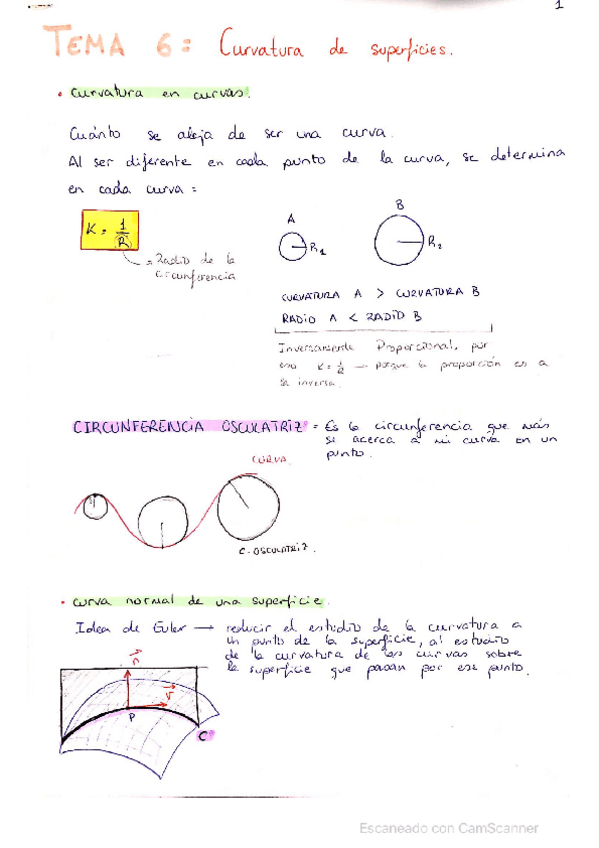 1
TEMA 6: Curvatura de superficies.
• curvatura en curvas.
Cuánto se aleja de ser una curva.
Al ser diferente en cada punto de la curva, se determina
en cada curva =
K = 1/R
= Radio de la
circunferencia
A
R1
B
R2
CURVATURA A > CURVATURA B
RADIO A < RADIO B
Inversamente Proporcional, por
eso K = 1/R — porque la proporción es a
la inversa.
CIRCUNFERENCIA OSCULATRIZ = Es la circunferencia que más
se acerca a mi curva en un
punto.
CURVA
C. OSCULATRIZ.
• curva normal de una superficie.
Idea de Euler → reducir el estudio de la curvatura a
un punto de la superficie, al estudio
de la curvatura de las curvas sobre
la superficie que pasan por ese punto.
n
v
P
C
Escaneado con CamScanner